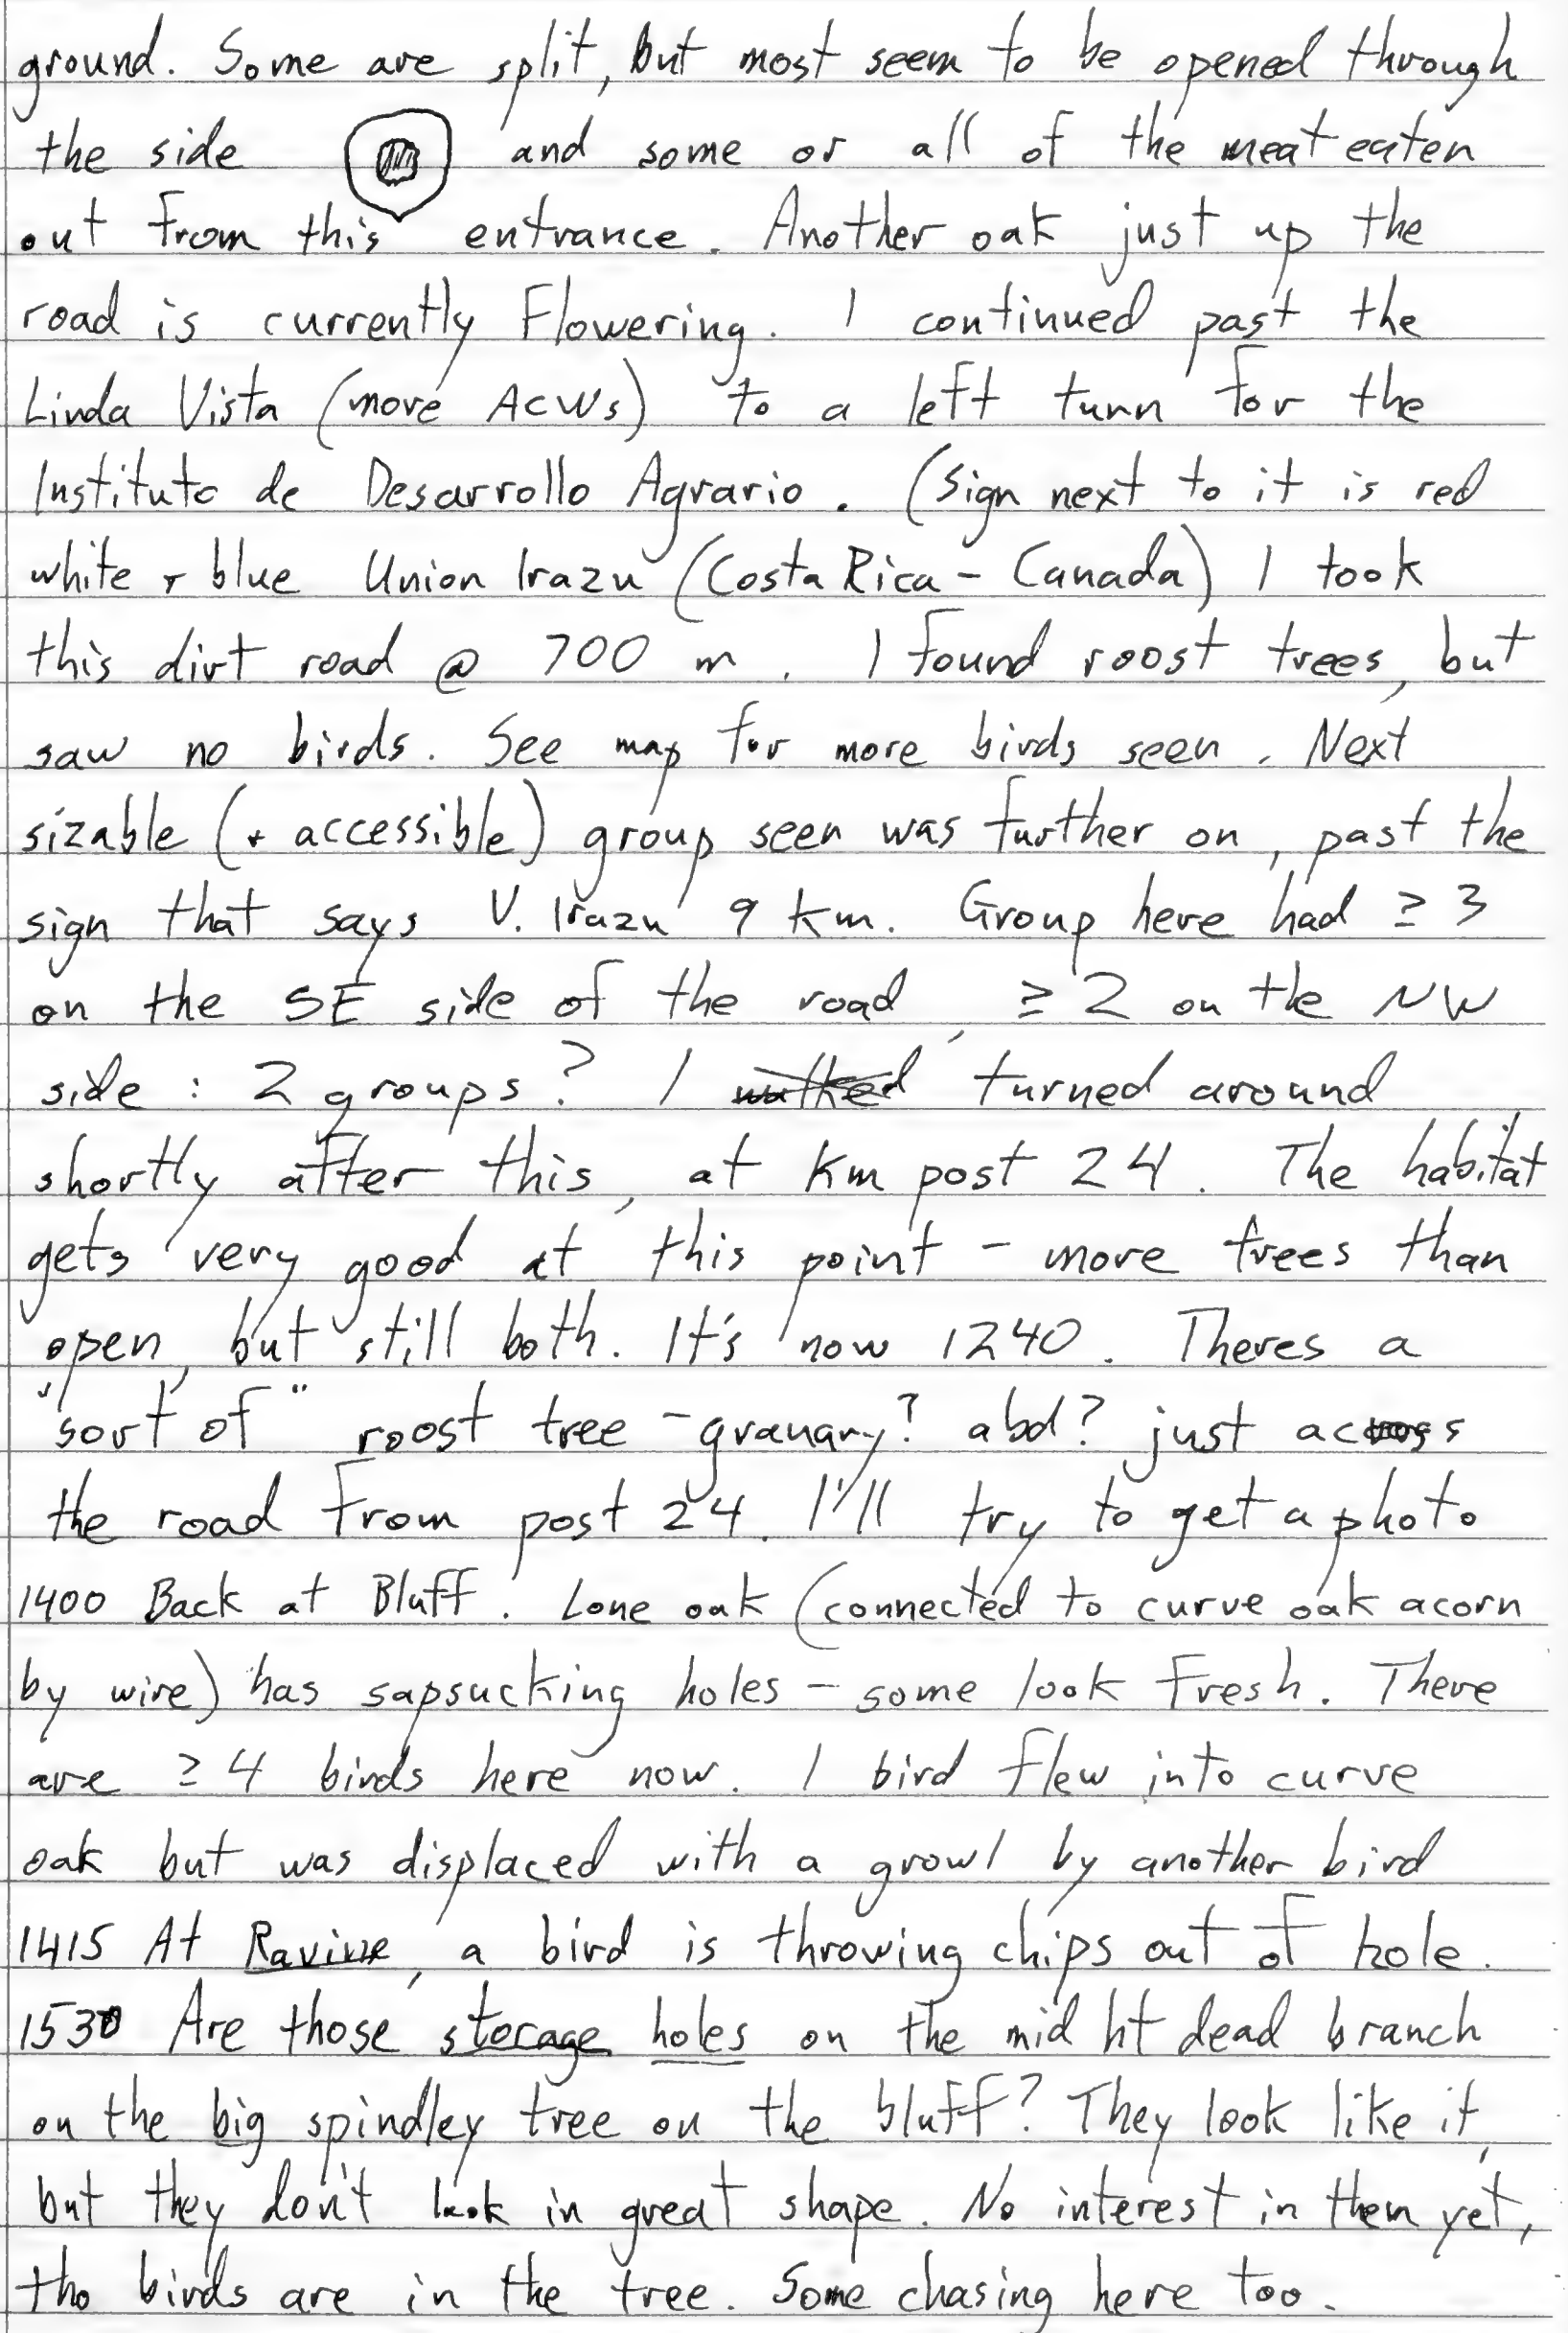 ground. Some are split, but most seem to be opened through
the side and some or all of the meat eaten
out from this entrance. Another oak just up the
road is currently flowering. I continued past the
Linda Vista (more ACWs) to a left turn for the
Instituto de Desarrollo Agrario. (Sign next to it is red
white + blue Union Irazu (Costa Rica - Canada) I took
this dirt road @ 700 m. I found roost trees, but
saw no birds. See map for more birds seen. Next
sizable (+ accessible) group seen was further on, past the
sign that says V. Irazu 9 km. Group here had ≥ 3
on the SE side of the road, ≥ 2 on the NW
side : 2 groups? I walked turned around
shortly after this, at Km post 24. The habitat
gets very good at this point - more trees than
open, but still both. It's now 1240. Theres a
"sort of" roost tree - granary? abd? just across
the road from post 24. I'll try to get a photo
1400 Back at Bluff. Lone oak (connected to curve oak acorn
by wire) has sapsucking holes - some look fresh. There
are ≥ 4 birds here now. 1 bird flew into curve
oak but was displaced with a growl by another bird
1415 At Ravine, a bird is throwing chips out of hole.
1530 Are those storage holes on the mid ht dead branch
on the big spindley tree on the bluff? They look like it,
but they don't look in great shape. No interest in them yet,
tho birds are in the tree. Some chasing here too.